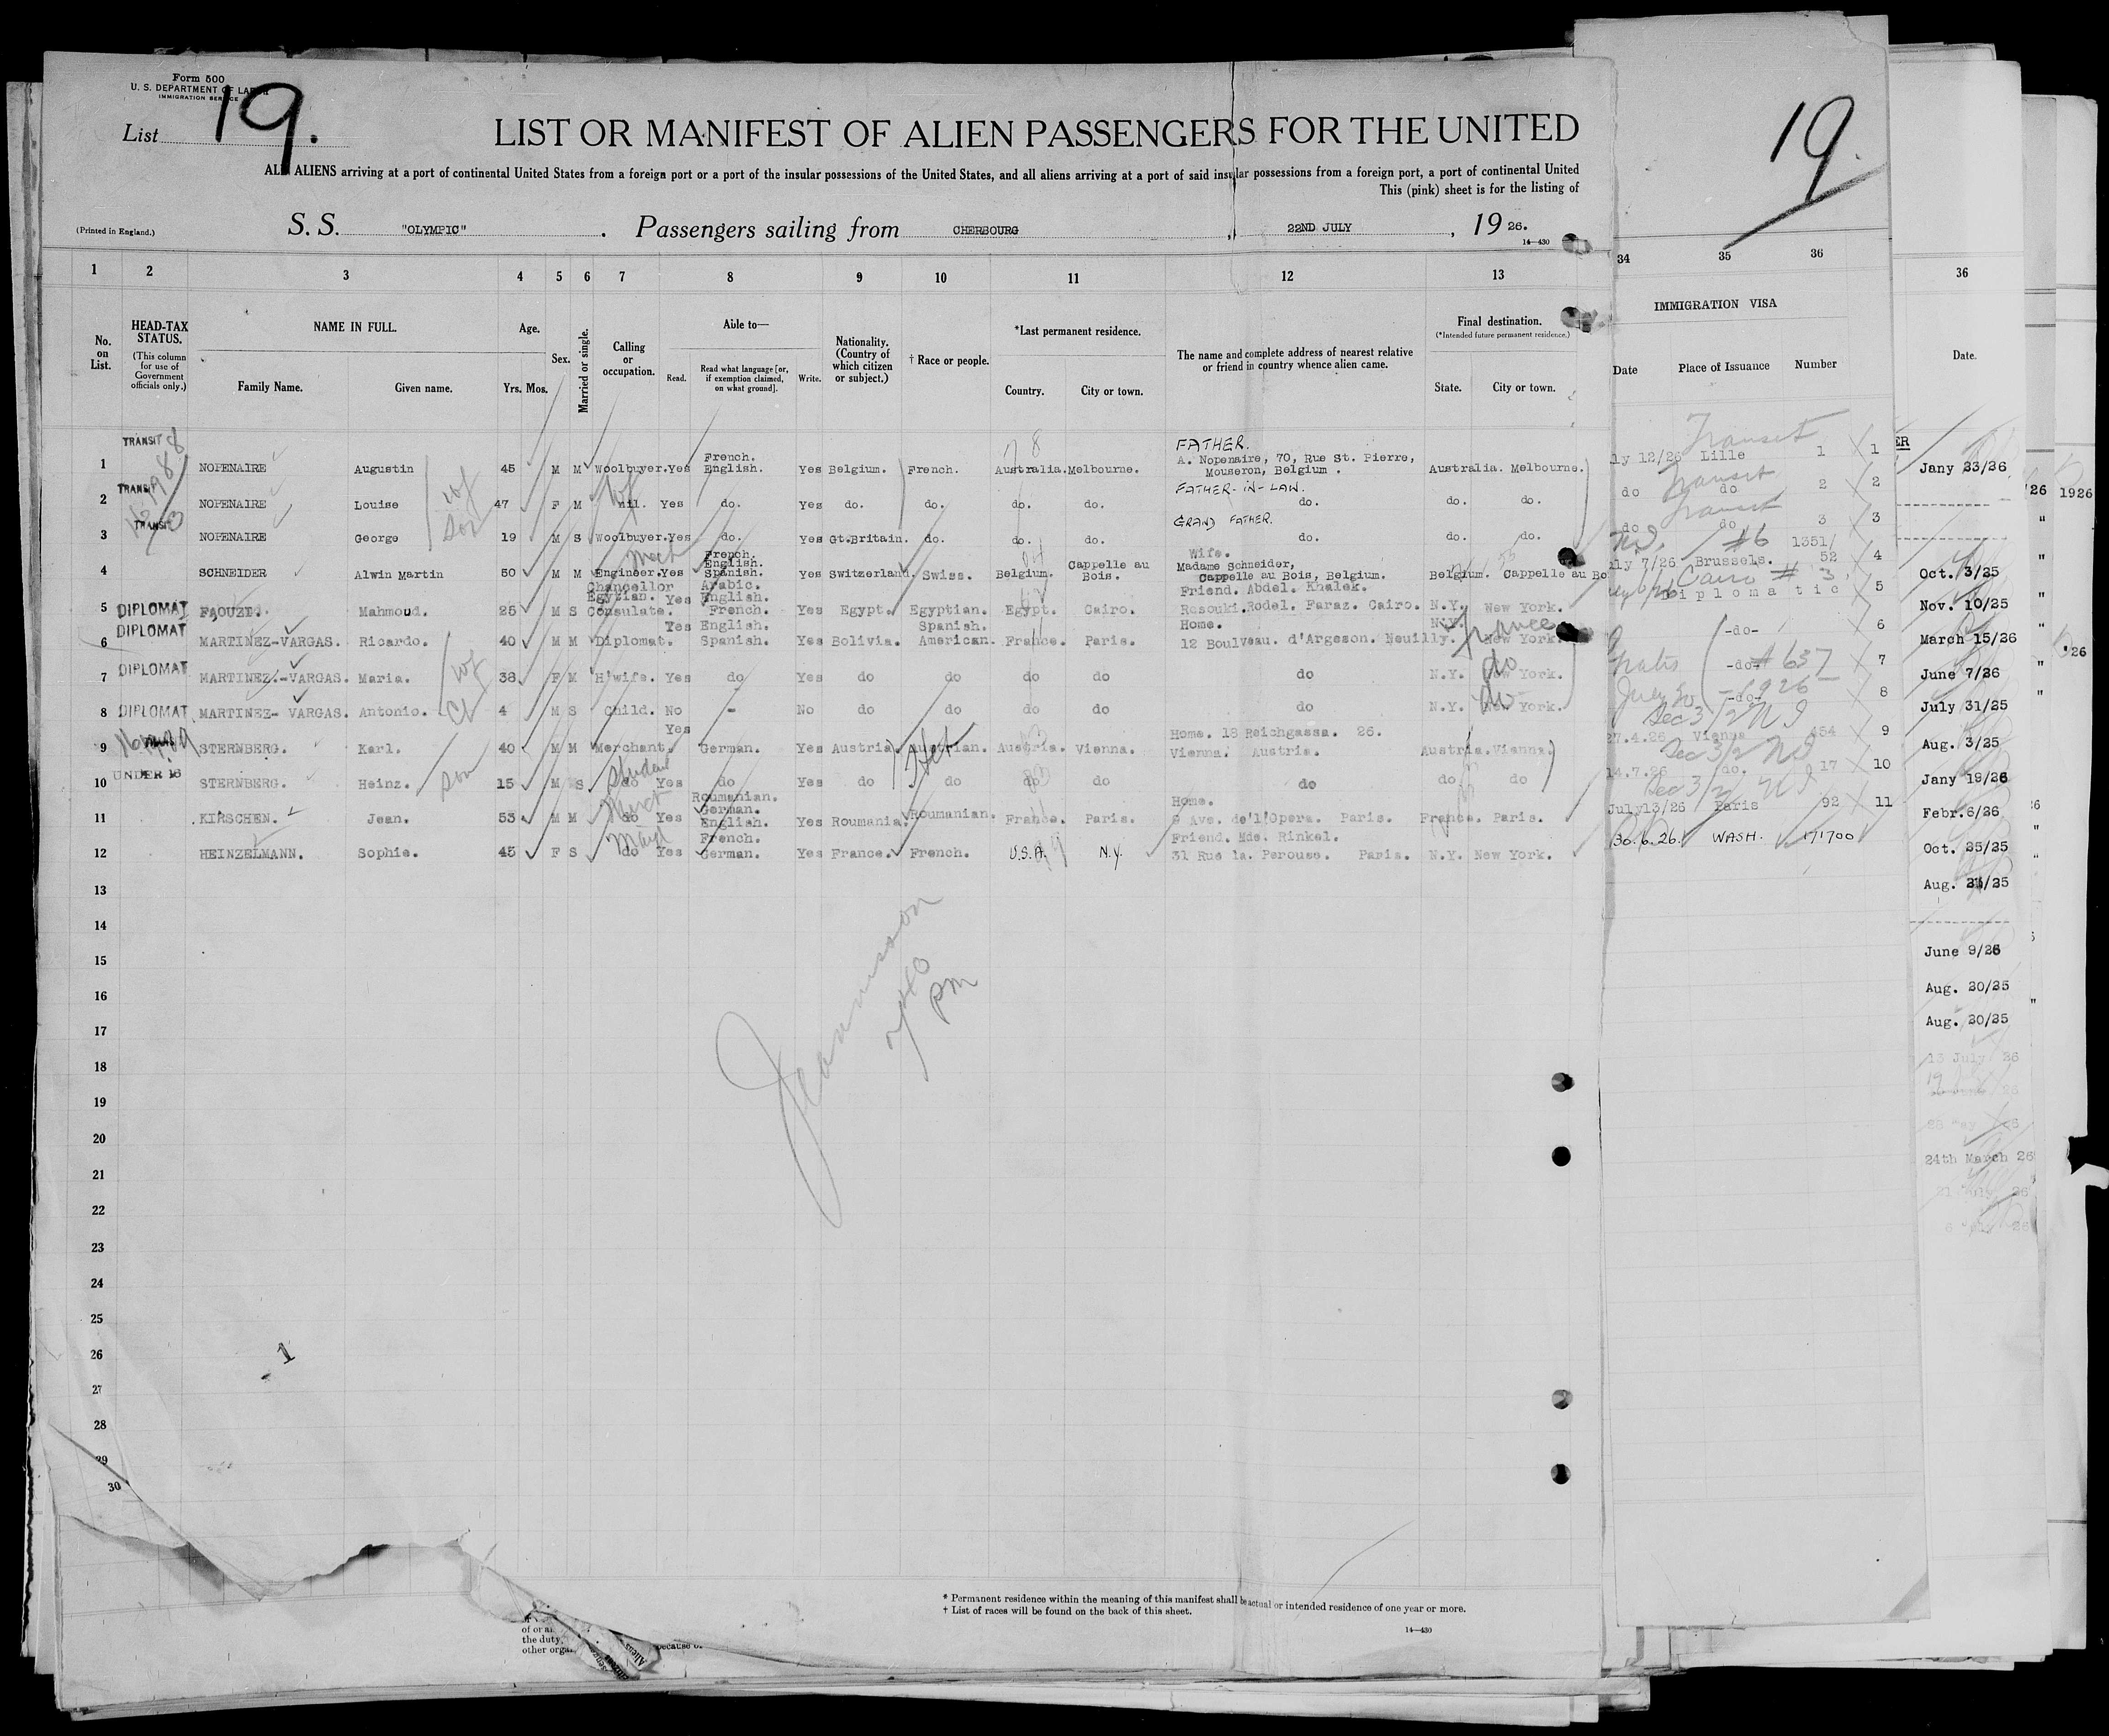 Form 500
U. S. DEPARTMENT OF LABOR
IMMIGRATION SERVICE
List 19.
LIST OR MANIFEST OF ALIEN PASSENGERS FOR THE UNITED
ALL ALIENS arriving at a port of continental United States from a foreign port or a port of the insular possessions of the United States, and all aliens arriving at a port of said insular possessions from a foreign port, a port of continental United
This (pink) sheet is for the listing of
(Printed in England.) S. S. "OLYMPIC" . Passengers sailing from CHERBOURG , 22ND JULY , 19 26.
14—430
19.
1 2 3 4 5 6 7 8 9 10 11 12 13 34 35 36 36
No. on List.
HEAD-TAX STATUS.
(This column for use of Government officials only.)
NAME IN FULL.
Family Name. Given name.
Age.
Yrs. Mos.
Sex.
Married or single.
Calling or occupation.
Able to—
Read. Read what language [or, if exemption claimed, on what ground]. Write.
Nationality. (Country of which citizen or subject.)
† Race or people.
*Last permanent residence.
Country. City or town.
The name and complete address of nearest relative or friend in country whence alien came.
Final destination.
(*Intended future permanent residence.)
State. City or town.
IMMIGRATION VISA
Date Place of Issuance Number
Date.
1 TRANSIT NOPENAIRE Augustin 45 M M Woolbuyer. Yes French. English. Yes Belgium. French. Australia. Melbourne. FATHER. A. Nopenaire, 70, Rue St. Pierre, Mouseron, Belgium . Australia. Melbourne. ly 12/26 Lille Transit 1 1
2 TRANSIT NOPENAIRE Louise wf 47 F M wf nil. Yes do. Yes do. do. do. do. FATHER-IN-LAW. do. do. do. do Transit do 2 2
3 TRANSIT NOPENAIRE George son 19 M S Woolbuyer. Yes do. Yes Gt.Britain. do. do. do. GRAND FATHER. do. do. do. do Transit do 3 3
4 SCHNEIDER Alwin Martin 50 M M Mech Engineer. Yes French. English. Spanish. Yes Switzerland. Swiss. Belgium. Cappelle au Bois. Wife. Madame Schneider, Cappelle au Bois, Belgium. Belgium. Cappelle au Bo ly 7/26 Brussels. #6 1351/ 52 4
5 DIPLOMAT FAOUZI. Mahmoud. 25 M S Chancellor Egyptian. Consulate. Yes Arabic. English. French. Yes Egypt. Egyptian. Egypt. Cairo. Friend. Abdel. Khalek. Rasouki. Rodel. Faraz. Cairo. N.Y. New York. Cairo # 3 Diplomatic 5
6 DIPLOMAT MARTINEZ-VARGAS. Ricardo. 40 M M Diplomat. Yes English. Spanish. Yes Bolivia. Spanish. American. France. Paris. Home. 12 Boulveau. d'Argeson. Neuilly. N.Y. New York. France -do- 6
7 DIPLOMAT MARTINEZ.-VARGAS. Maria. wf 38 F M H'wife. Yes do Yes do do do do do N.Y. New York. do Gratis -do- # 637 7
8 DIPLOMAT MARTINEZ- VARGAS. Antonio. Ch 4 M S Child. No - No do do do do do N.Y. New York. do July 20 -do- 1926 8
9 STERNBERG. Karl. 40 M M Merchant. Yes German. Yes Austria Austrian. Austria. Vienna. Home. 18 Reichgassa. 26. Vienna. Austria. Austria. Vienna. 27.4.26 Vienna 454 Sec 3/2 NI 9
10 UNDER 16 STERNBERG. Heinz. son 15 M S student do Yes do Yes do do do do do do do 14.7.26 do. 17 Sec 3/2 NI 10
11 KIRSCHEN. Jean. 53 M M Merct do Yes Roumanian. German. English. Yes Roumania. Roumanian. France. Paris. Home. 9 Ave. de'l'Opera. Paris. France. Paris. July13/26 Paris 92 Sec 3/2 NI 11
12 HEINZELMANN. Sophie. 45 F S Maid do Yes French. German. Yes France. French. U.S.A. N.Y. Friend. Mde. Rinkel. 31 Rue la. Perouse. Paris. N.Y. New York. 30.6.26. WASH. 171700
13
14
15
16
17
18
19
20
21
22
23
24
25
26
27
28
29
30
PM
1
Jany 23/26
Oct. 3/25
Nov. 10/25
March 15/26
June 7/26
July 31/25
Aug. 3/25
Jany 19/26
Febr. 6/26
Oct. 25/25
Aug. 21/25
June 9/26
Aug. 20/25
Aug. 20/25
13 July 26
24th March 26
'26 1926
'26
* Permanent residence within the meaning of this manifest shall be actual or intended residence of one year or more.
† List of races will be found on the back of this sheet.
14—430
the duty,